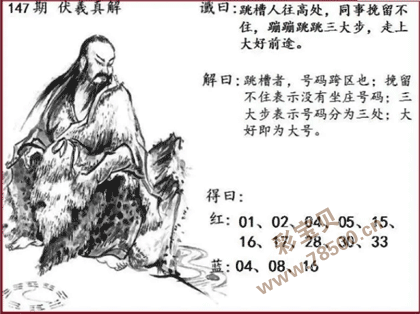 147期 伏羲真解
谶曰：跳槽人往高处，同事挽留不
住，蹦蹦跳跳三大步，走上
大好前途。
解曰：跳槽者，号码跨区也；挽留
不住表示没有坐庄号码；三
大步表示号码分为三处；大
好即为大号。
得曰：
红：01、02、04、05、15、
16、17、28、30、33
蓝：04、08、16
彩宝贝
www.78500.cn